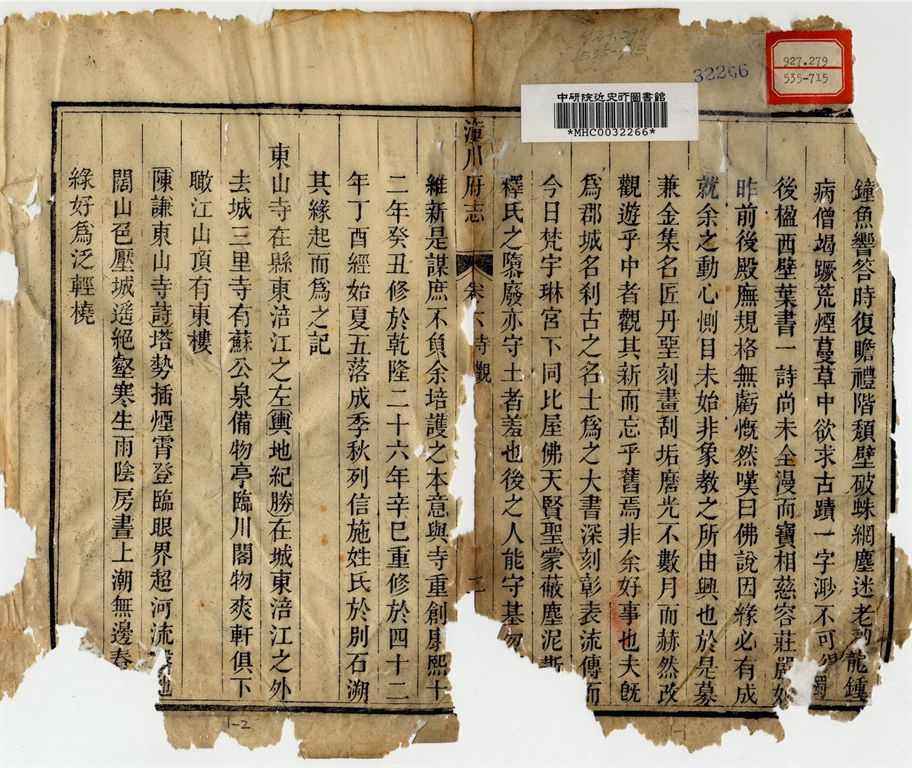 927.279
535-715
32266
927.279
535-715
中研院近史所圖書館
*MHC0032266*
鐘魚響答時復瞻禮階頹壁破蛛網塵迷老龍鍾
病僧竭蹶荒煙蔓草中欲求古蹟一字渺不可得
後楹西壁葉書一詩尚未全漫而寶相慈容莊嚴妙
昨前後殿廡規格無虧慨然嘆曰佛說因緣必有成
就余之動心惻目未始非象教之所由興也於是募
兼金集名匠丹堊刻畫刮垢磨光不數月而赫然改
觀遊乎中者觀其新而忘乎舊焉非余好事也夫旣
爲郡城名刹古之名士爲之大書深刻彰表流傳而
今日梵宇琳宮下同比屋佛天賢聖蒙蔽塵泥斯
釋氏之隳廢亦守土者羞也後之人能守基勿
潼川府志
卷六 寺觀
三
維新是謀庶不負余培護之本意與寺重創康熙十
二年癸丑修於乾隆二十六年辛巳重修於四十二
年丁酉經始夏五落成季秋列信施姓氏於別石溯
其緣起而爲之記
東山寺在縣東涪江之左輿地紀勝在城東涪江之外
去城三里寺有蘇公泉備物亭臨川閣物爽軒俱下
瞰江山頂有東樓
陳謙東山寺詩塔勢插煙霄登臨眼界超河流地
闊山色壓城遥絕壑寒生雨陰房晝上潮無邊春
綠好爲泛輕橈
1-2
1-1